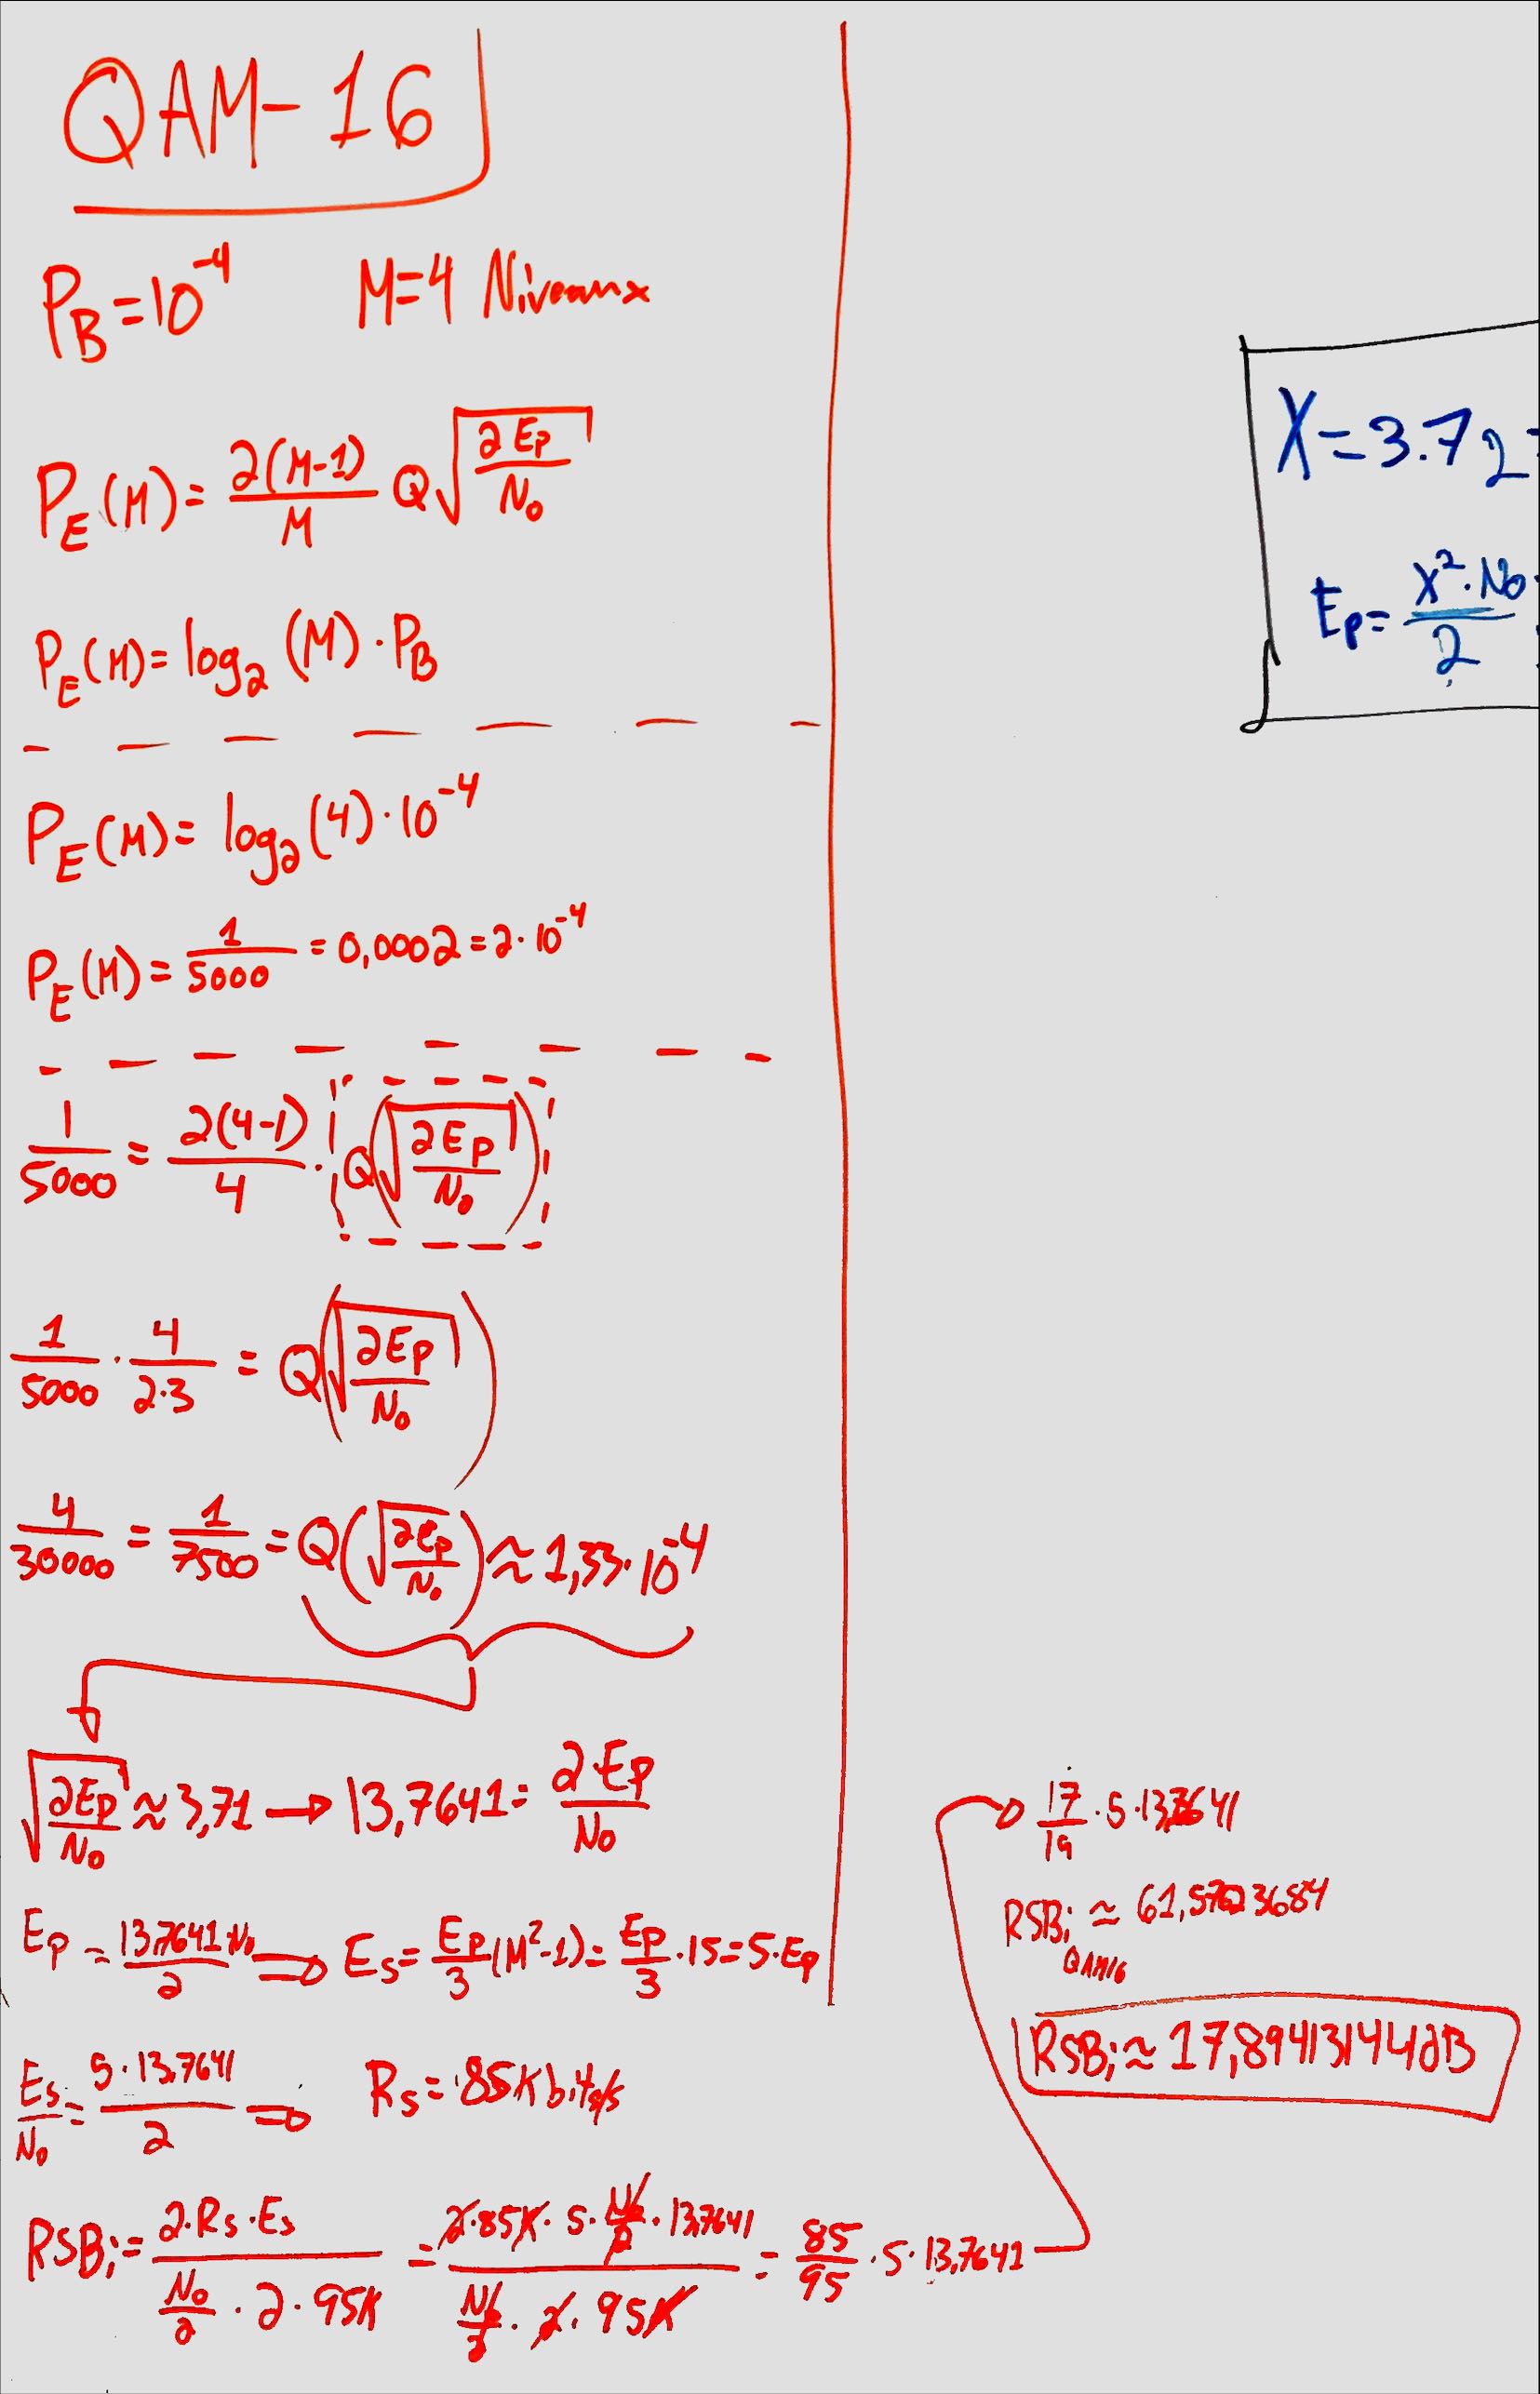 QAM-16
P_B=10^-4 M=4 Niveaux
P_E(M)= 2(M-1)/M Q√(2Ep/No)
P_E(M)= log_2 (M)·P_B
P_E(M)= log_2(4)·10^-4
P_E(M)= 1/5000 = 0,0002=2·10^-4
1/5000 = 2(4-1)/4 · Q(√(2Ep/No))
1/5000 · 4/2·3 = Q(√(2Ep/No))
4/30000 = 1/7500 = Q(√(2Ep/No)) ≈ 1,33·10^-4
√(2Ep/No) ≈ 3,71 → 13,7641= 2·Ep/No
Ep = 13,7641·No/2 ⇒ Es= Ep/3 (M^2-1)= Ep/3 ·15=5·Ep
Es/No = 5·13,7641/2 ⇒ Rs= 85Kbits/s
RSBi= 2·Rs·Es / No/2 · 2·95K = 2·85K·5·No/2·13,7641 / No/2 · 2·95K = 85/95 ·5·13,7641
X=3.72
Ep= X^2·No/2
17/19 ·5·13,7641
RSBi ≈ 61,57623684
QAM16
RSBi ≈ 17,89413144dB